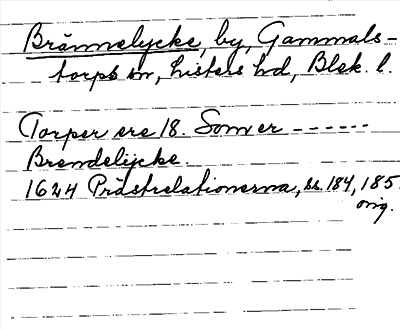 Brännelycke, by, Gammals-
torps sn, Listers hd, Blek. l.
Torper ere 18. Som er ------
Brendelijcke.
1624 Prästrelationerna, ss. 184, 185.
orig.